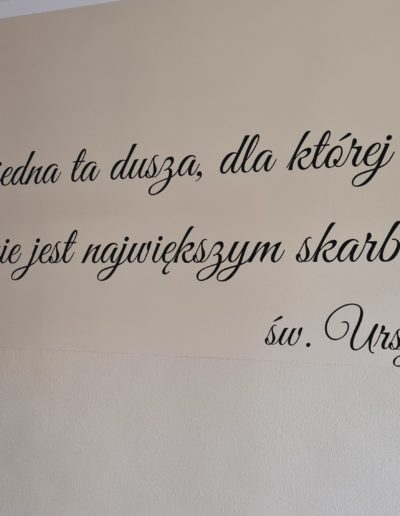 jedna ta dusza, dla której
ie jest największym skarb
św. Urs